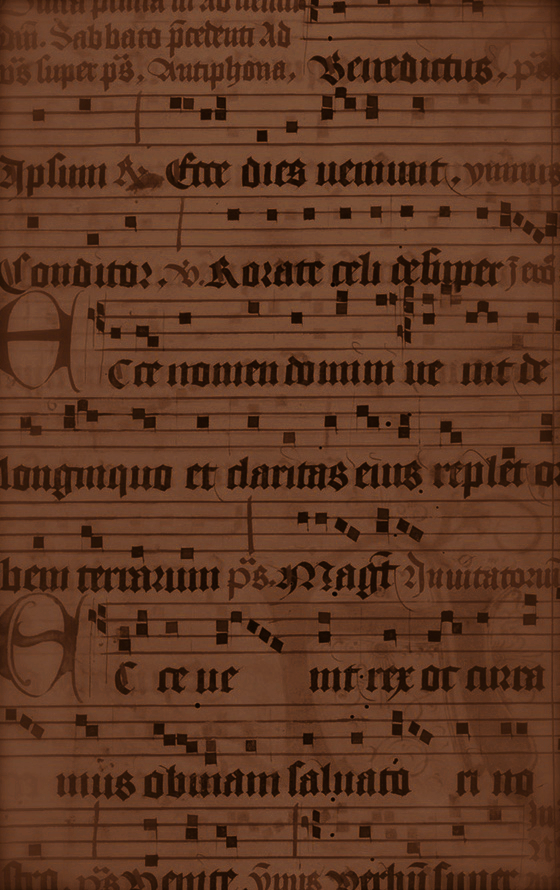 dñi. Sabbato p̃cedenti Ad
p̃s super p̃s. Antiphona. Benedictus. ps
Ipsum ℟. Ecce dies ueniunt. ymnus
Conditor. ℣. Rorate celi desuper
Ecce nomen domini ue nit de
longinquo et claritas eius replet or
bem terrarum ps. Magt Inuitatorium
Ecce ue nit rex oc curra
mus obuiam saluato ri no
stro. ps Venite. ymnus Verbū super